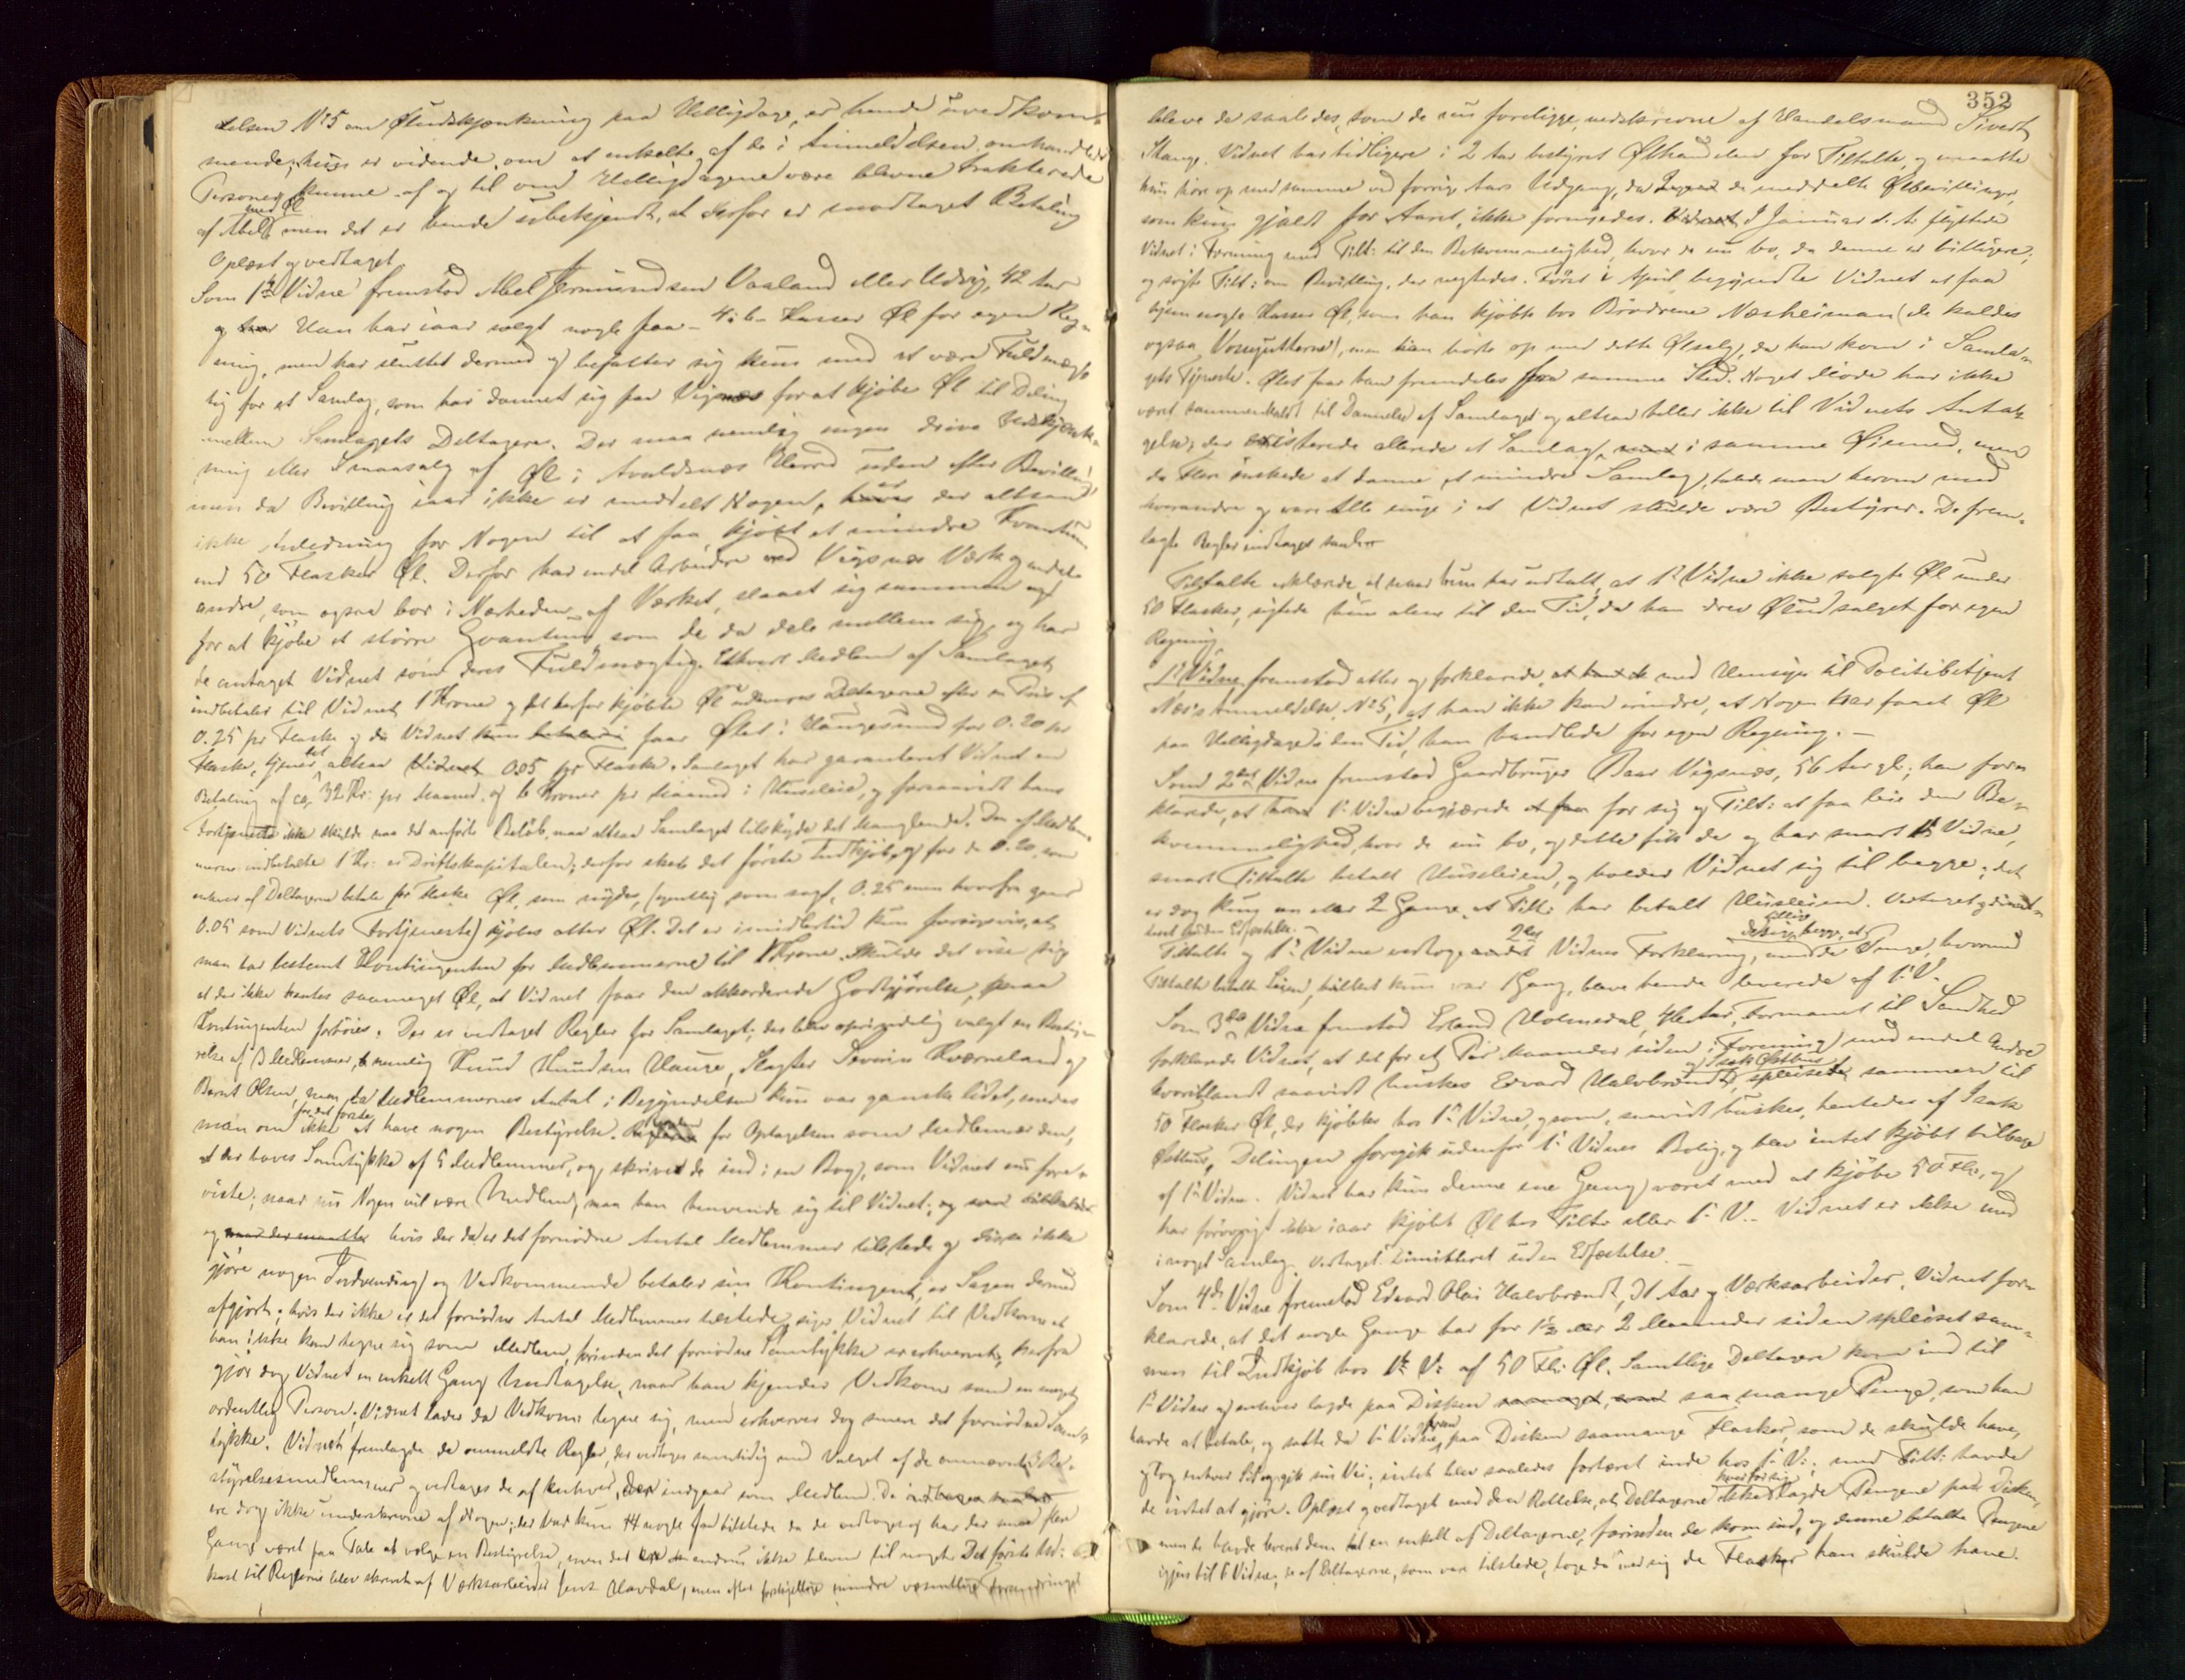 telsen No 5 om Øludskjænkning paa Helligdage, er hende uvedkom-
mende; hun er vidende om at enkelte af de i Anmeldelsen omhandlede
Personer kunne af og til om Helligdagene være blevne trakterede
med Øl
af Abel men det er hende ubekjendt, at derfor er modtaget Betaling
Oplæst og vedtaget.
Som 1ste Vidne fremstod Abel Jermundsen Vaaland eller Udvig, 42 Aar
og Han har iaar solgt nogle faa - 4 à 6 - Kasser Øl for egen Reg-
ning, men har sluttet dermed og befatter sig kun med at være Fuldmægt
tig for et Samlag, som har dannet sig paa Vigsnæs for at kjøbe Øl til Deling
mellem Samlagets Deltagere. Der maa nemlig ingen drive Udskjænk-
ning eller Smaasalg af Øl i Avaldsnæs Herred uden efter Bevilling,
men da Bevilling iaar ikke er meddelt Nogen, er der altsaa
ikke Anledning for Nogen til at faa kjøbt et mindre Kvantum
end 50 Flasker Øl. Derfor har endel Arbeidere ved Vigsnæs Værk og endel
andre, som ogsaa bor i Nærheden af Værket, slaaet sig sammen
for at kjøbe et større Qvantum som de da dele mellem sig, og har
de antaget Vidnet som deres Fuldmægtig. Ethvert Medlem af Samlaget
indbetaler til Vidnet 1 Krone og det herfor kjøbte Øl Deltagerne efter en Pris af
0.25 pr Flaske og da Vidnet faar Øllet i Haugesund for 0.20 pr
Flaske, tjener altsaa Vidnet 0.05 pr Flaske. Samlaget har garanteret Vidnet en
Betaling af ca 32 Kr. pr Maaned og 6 Kroner pr Maaned i Husleie, og forsaavidt hans
Fortjeneste ikke skulde naa det anførte Beløb, maa altsaa Samlaget tilskyde det Manglende. Den af Medlem-
merne indbetalte 1 Kr. er Driftskapitalen; derfor skete det første Indkjøb, og for de 0.20, som
enhver af Deltagerne betale pr Flaske Øl, som nydes, (egentlig som sagt, 0.25 men hvorfra gaar
0.05 som Vidnets Fortjeneste) kjøbes atter Øl. Det er imidlertid kun forsøgsvis, at
man har bestemt Kontingenten for Medlemmerne til 1 Krone. Skulde det vise sig
at der ikke hentes saameget Øl, at Vidnet faar den akkorderede Godtgjørelse, maa
Kontingenten forhøies. Der er vedtaget Regler for Samlaget; der blev oprindelig valgt en Besty-
relse af 3 Medlemmer, nemlig Knud Knudsen Hauge, Slagter Severin Kværneland og
Bernt Olsen, men da Medlemmernes Antal i Begyndelsen kun var ganske lidet, enedes
for det første
man om ikke at have nogen Bestyrelse. for Optagelsen som Medlem er den,
at der haves Samtykke af 5 Medlemmer, og skrives de ind i en Bog, som Vidnet nu fore-
viste; naar nu Nogen vil være Medlem, maa han henvende sig til Vidnet; og
og naar der maatte hvis der da er det fornødne Antal Medlemmer tilstede og disse ikke
gjøre nogen Indvending og Vedkommende betaler sin Kontingent, er Sagen dermed
afgjort; hvis der ikke er det fornødne Antal Medlemmer tilstede, siger Vidnet til Vedkom at
han ikke kan tegne sig som Medlem, forinden det fornødne Samtykke er erhvervet; herfra
gjør dog Vidnet en enkelt Gang Undtagelse, naar han kjender Vedkom som en meget
ordentlig Person. Vidnet lader da Vedkom tegne sig, men erhverver dog senere det fornødne Sam-
tykke. Vidnet fremlagde de ommeldte Regler, der vedtoges samtidig med Valget af de omnævnte 3 Be-
styrelsesmedlemmer og vedtages de af Enhver, der indgaar som Medlem. De
ere dog ikke underskrevne af Nogen; der var kun 14 nogle faa tilstede da de vedtoges og har der flere
Gange været paa Tale at vælge en Bestyrelse, men det er endnu ikke blevet til noget. Det første Ud-
kast til Reglerne blev skrevet af Værksarbeider Jens Havdal, men efter forskjellige mindre væsentlige Forandringer
352
bleve de saaledes, som de nu foreligge, nedskrevne af Handelsmand Sivert
Stange. Vidnet har tidligere i 2 Aar bestyret Ølhandelen for Tiltalte, og maatte
hun høre op med samme ved forrige Aars Udgang, da de meddelte Ølbevillinger,
som kun gjaldt for Aaret, ikke fornyedes. I Januar d. A. flyttede
Vidnet i Forening med Tilt: til den Bekvemmelighed, hvor de nu bo, da denne er billigere,
og søgte Tilt: om Bevilling, der negtedes. Først i April begyndte Vidnet at faa
hjem nogle Kasser Øl, som han kjøbte hos Brødrene Næsheiman (de kaldes
ogsaa Vormgutterne), men han hørte op med dette Ølsalg, da han kom i Samla-
gets Tjeneste. Øllet faar han fremdeles fra samme Sted. Noget Møde har ikke
været sammenkaldt til Dannelse af Samlaget og altsaa heller ikke til Vidnets Anta-
gelse; der existerede allerede et Samlag, i samme Øiemed, men
da Flere ønskede at danne et mindre Samlag, talede man herom med
hverandre og vare Alle enige i at Vidnet skulde være Bestyrer. De frem-
lagte Regler indtages saal:
Tiltalte erklærede at naar hun har udtalt, at 1ste Vidne ikke solgte Øl under
50 Flasker, sigtede hun alene til den Tid, da han drev Øludsalget for egen
Regning
1ste Vidne fremstod atter og forklarede, med Hensyn til Politibetjent
Næs's Anmeldelse No 5, at han ikke kan erindre, at Nogen har faaet Øl
paa Helligdage i den Tid, han handlede for egen Regning. -
Som 2det Vidne fremstod Gaardbruger Baar Vigsnæs, 56 Aar gl; han for-
klarede, at 1ste Vidne begjærede for sig og Tilt: at faa leie den Be-
kvemmelighed, hvor de nu bo, og dette fik de og har snart 1ste Vidne,
snart Tiltalte betalt Husleien, og holder Vidnet sig til begge; det
er dog kun en eller 2 Gange, at Tilt: har betalt Husleien. Vedtaget dimit-
teret uden Edfæstelse. -
Tiltalte og 1ste Vidne vedtoge 2det Vidnes Forklaring, de Penge, hvormed
Tiltalte betalte Leien, hvilket kun var 1 Gang, bleve hende leverede af 1ste V.
Som 3die Vidne fremstod Erland Holmedal, Aar, Formanet til Sandhed
forklarede Vidnet, at det for et Par Maaneder siden i Forening med endel Andre
og Isak Østhus
hvoriblandt saavidt huskes Edvard Halvbrandt, spleisede sammen til
50 Flasker Øl, der kjøbtes hos 1ste Vidne, og som, saavidt huskes, hentedes af Isak
Østhus, Delingen foregik udenfor 1ste Vidnes Bolig, og blev intet kjøbt tilbage
af 1ste Vidne. Vidnet har kun denne ene Gang været med at kjøbe 50 Fl:, og
har forøvrigt ikke iaar kjøbt Øl hos Tilte eller 1ste V. - Vidnet er ikke med
i noget Samlag. Vedtaget. Dimitteret uden Edfæstelse. -
Som 4de Vidne fremstod Edvard Olai Halvbrandt, 31 Aar og Værksarbeider. Vidnet for-
klarede, at det nogle Gange har for 1½ eller 2 Maaneder siden spleiset sam-
men til Indkjøb hos 1ste V: af 50 Fl: Øl. Samtlige Deltagere kom ind til
1ste Vidne og enhver lagde paa Disken saa mange Penge, som han
havde at betale, og satte da 1ste Vidne frem paa Disken saamange Flasker, som de skulde have,
og tog enhver sit og gik sin Vei; intet blev saaledes fortæret inde hos 1ste V:, med Tilt: havde
hver for sig
de intet at gjøre. Oplæst og vedtaget med den Rettelse, at Deltagerne ikke lagde Pengene paa Disken,
men de havde levert dem til en enkelt af Deltagerne, forinden de kom ind, og denne betalte Pengene
igjen til 1ste Vidne; de af Deltagerne, som vare tilstede, toge da med sig de Flasker han skulde have.